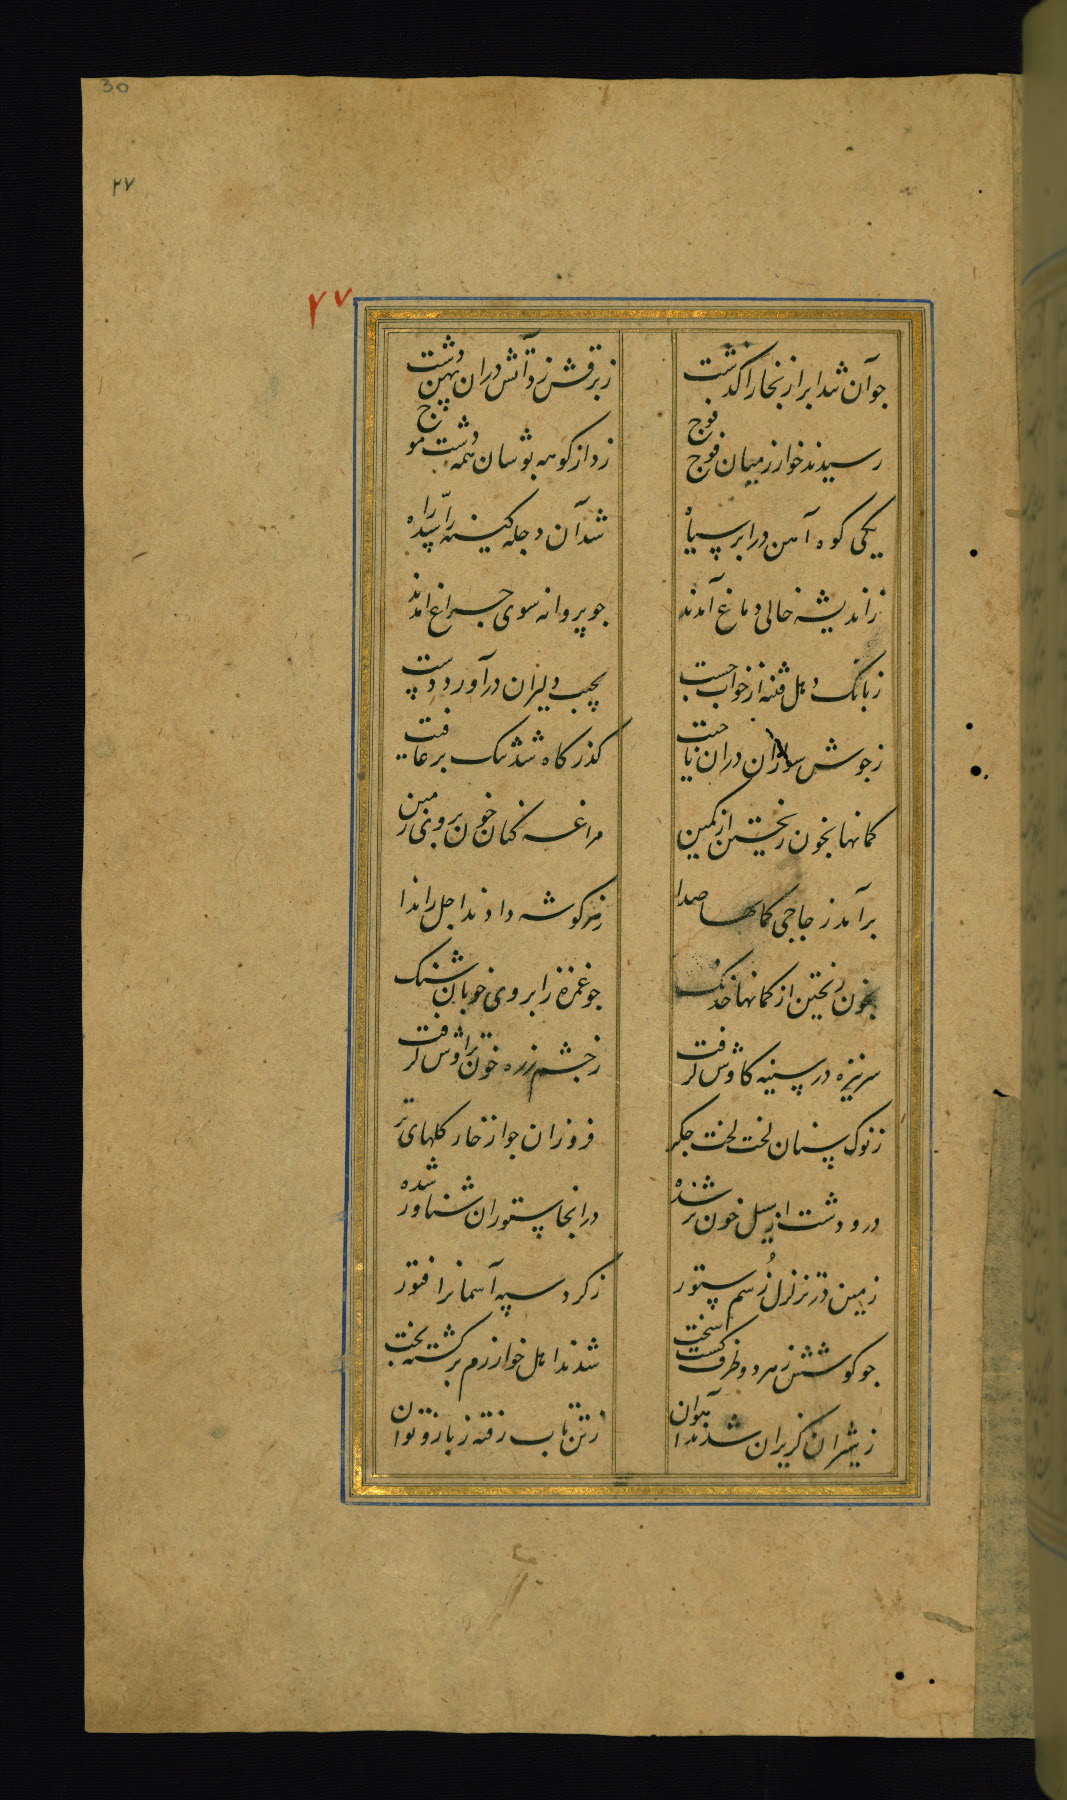 30
۲۷
۲۷
جو آن شد ابر از بخارا گذشت
ز برقش زد آتش دران پهن دشت
رسیدند خوارزمیان فوج فوج
زد از کوهه پوشان همه دشت موج
یکی کوه آهن در ابر سیاه
شد آن دجله کینه را سد راه
ز اندیشه خالی دماغ آمدند
جو پروانه سوی چراغ آمدند
ز بانک دهل فتنه از خواب جست
بجیب دلیران درآورد دست
ز جوش سواران دران
کذرکاه شد تنک بر عافیت
کمانها بخون ریختن از کمین
مراغه کنان خون بروی زمین
برآمد ز جاجی کمانها صدا
ز هر کوشه دادند اجل را ندا
بخون ریختن از کمانها خدنک
جو غمزه ز ابروی خوبان شنک
سر نیزه در سینه کاوش گرفت
ز چشم زره خون تراوش گرفت
ز نوک سنان لخت لخت جکر
فروزان جو از خار کلهای تر
در و دشت از سیل خون پر شده
در انجا ستوران شناور شده
زمین در تزلزل ز سم ستور
ز کرد سپه آسمانرا فتور
جو کوشش ز هر دو طرف کشت سخت
شدند اهل خوارزم برکشته بخت
ز شیران کریزان شدند آهوان
ز تن تاب رفته ز بازو توان